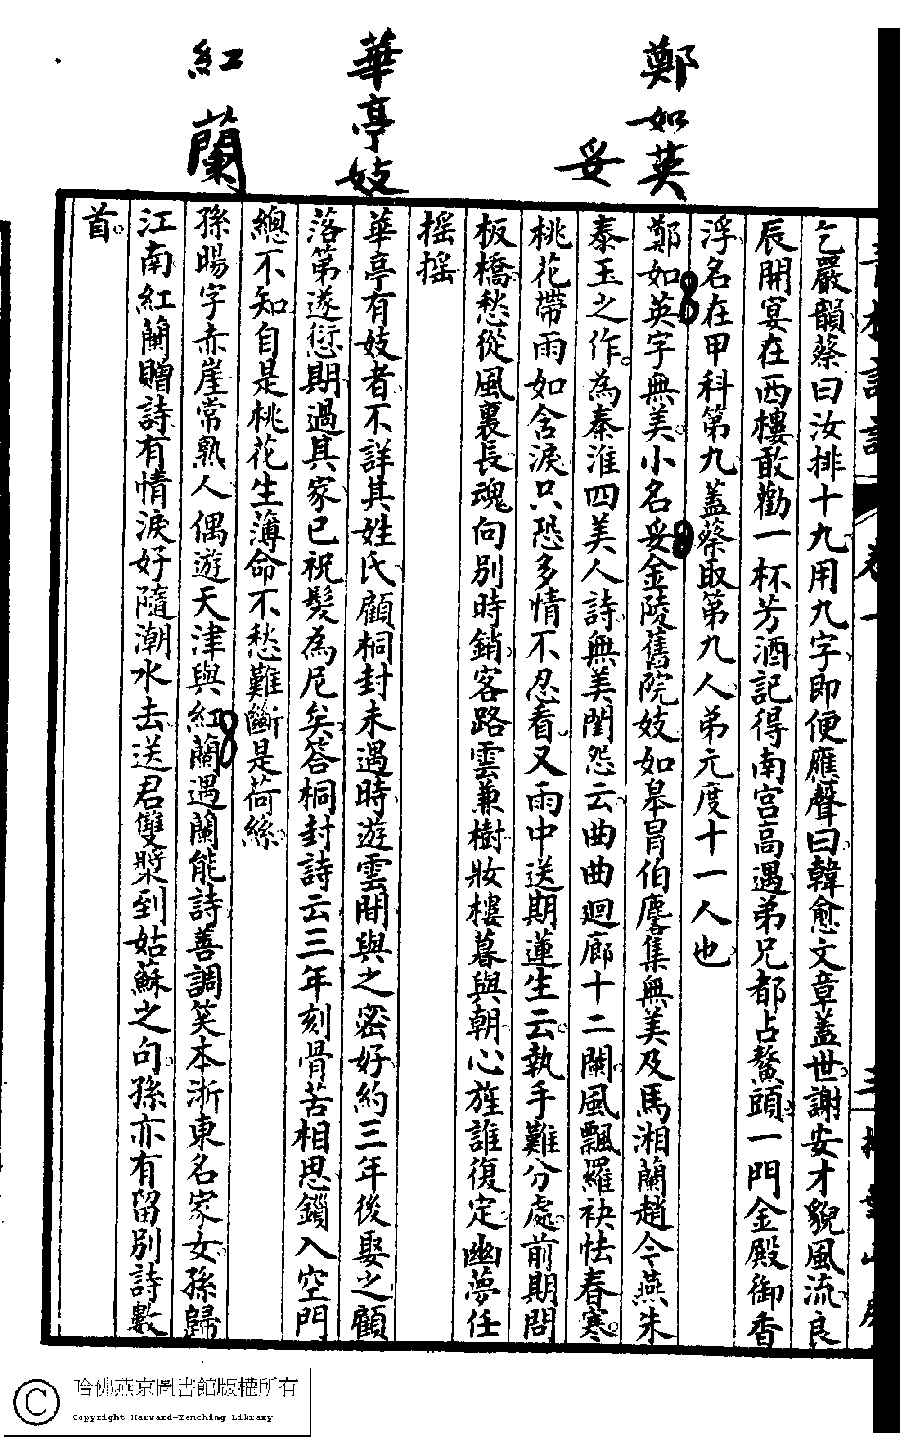 鄭如英
妥
華亭妓
紅蘭
乞嚴韻蔡曰汝排十九用九字即便應聲曰韓愈文章蓋世謝安才貌風流良
辰開宴在西樓敢勸一杯芳酒記得南宮高遇弟兄都占鰲頭一門金殿御香
浮名在甲科第九蓋蔡取第九人弟元度十一人也
鄭如英字無美小名妥金陵舊院妓如皋冒伯麐集無美及馬湘蘭趙令燕朱
泰玉之作為秦淮四美人詩無美閨怨云曲曲迴廊十二闌風飄羅袂怯春寒
桃花帶雨如含淚只恐多情不忍看又雨中送期蓮生云執手難分處前期問
板橋愁從風裏長魂向別時銷客路雲兼樹妝樓暮與朝心旌誰復定幽夢任
搖搖
華亭有妓者不詳其姓氏顧桐封未遇時遊雲間與之密好約三年後娶之顧
落第遂愆期過其家已祝髮為尼矣答桐封詩云三年刻骨苦相思鎻入空門
總不知自是桃花生薄命不愁難斷是荷絲
孫暘字赤崖常熟人偶遊天津與紅蘭遇蘭能詩善調笑本浙東名家女孫歸
江南紅蘭贈詩有情淚好隨潮水去送君雙槳到姑蘇之句孫亦有留別詩數
首
哈佛燕京圖書館版權所有
Copyright Harvard-Yenching Library